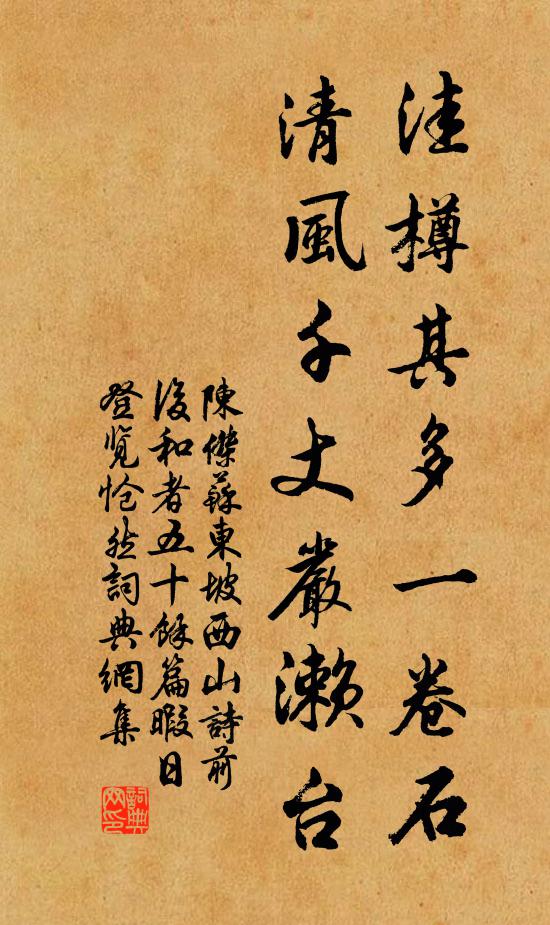 洼樽其多一卷石
清風千丈嚴瀨台
陳傑蘇東坡西山詩前
後和者五十餘篇暇日
登覽愴然詞典網集
詞典網印